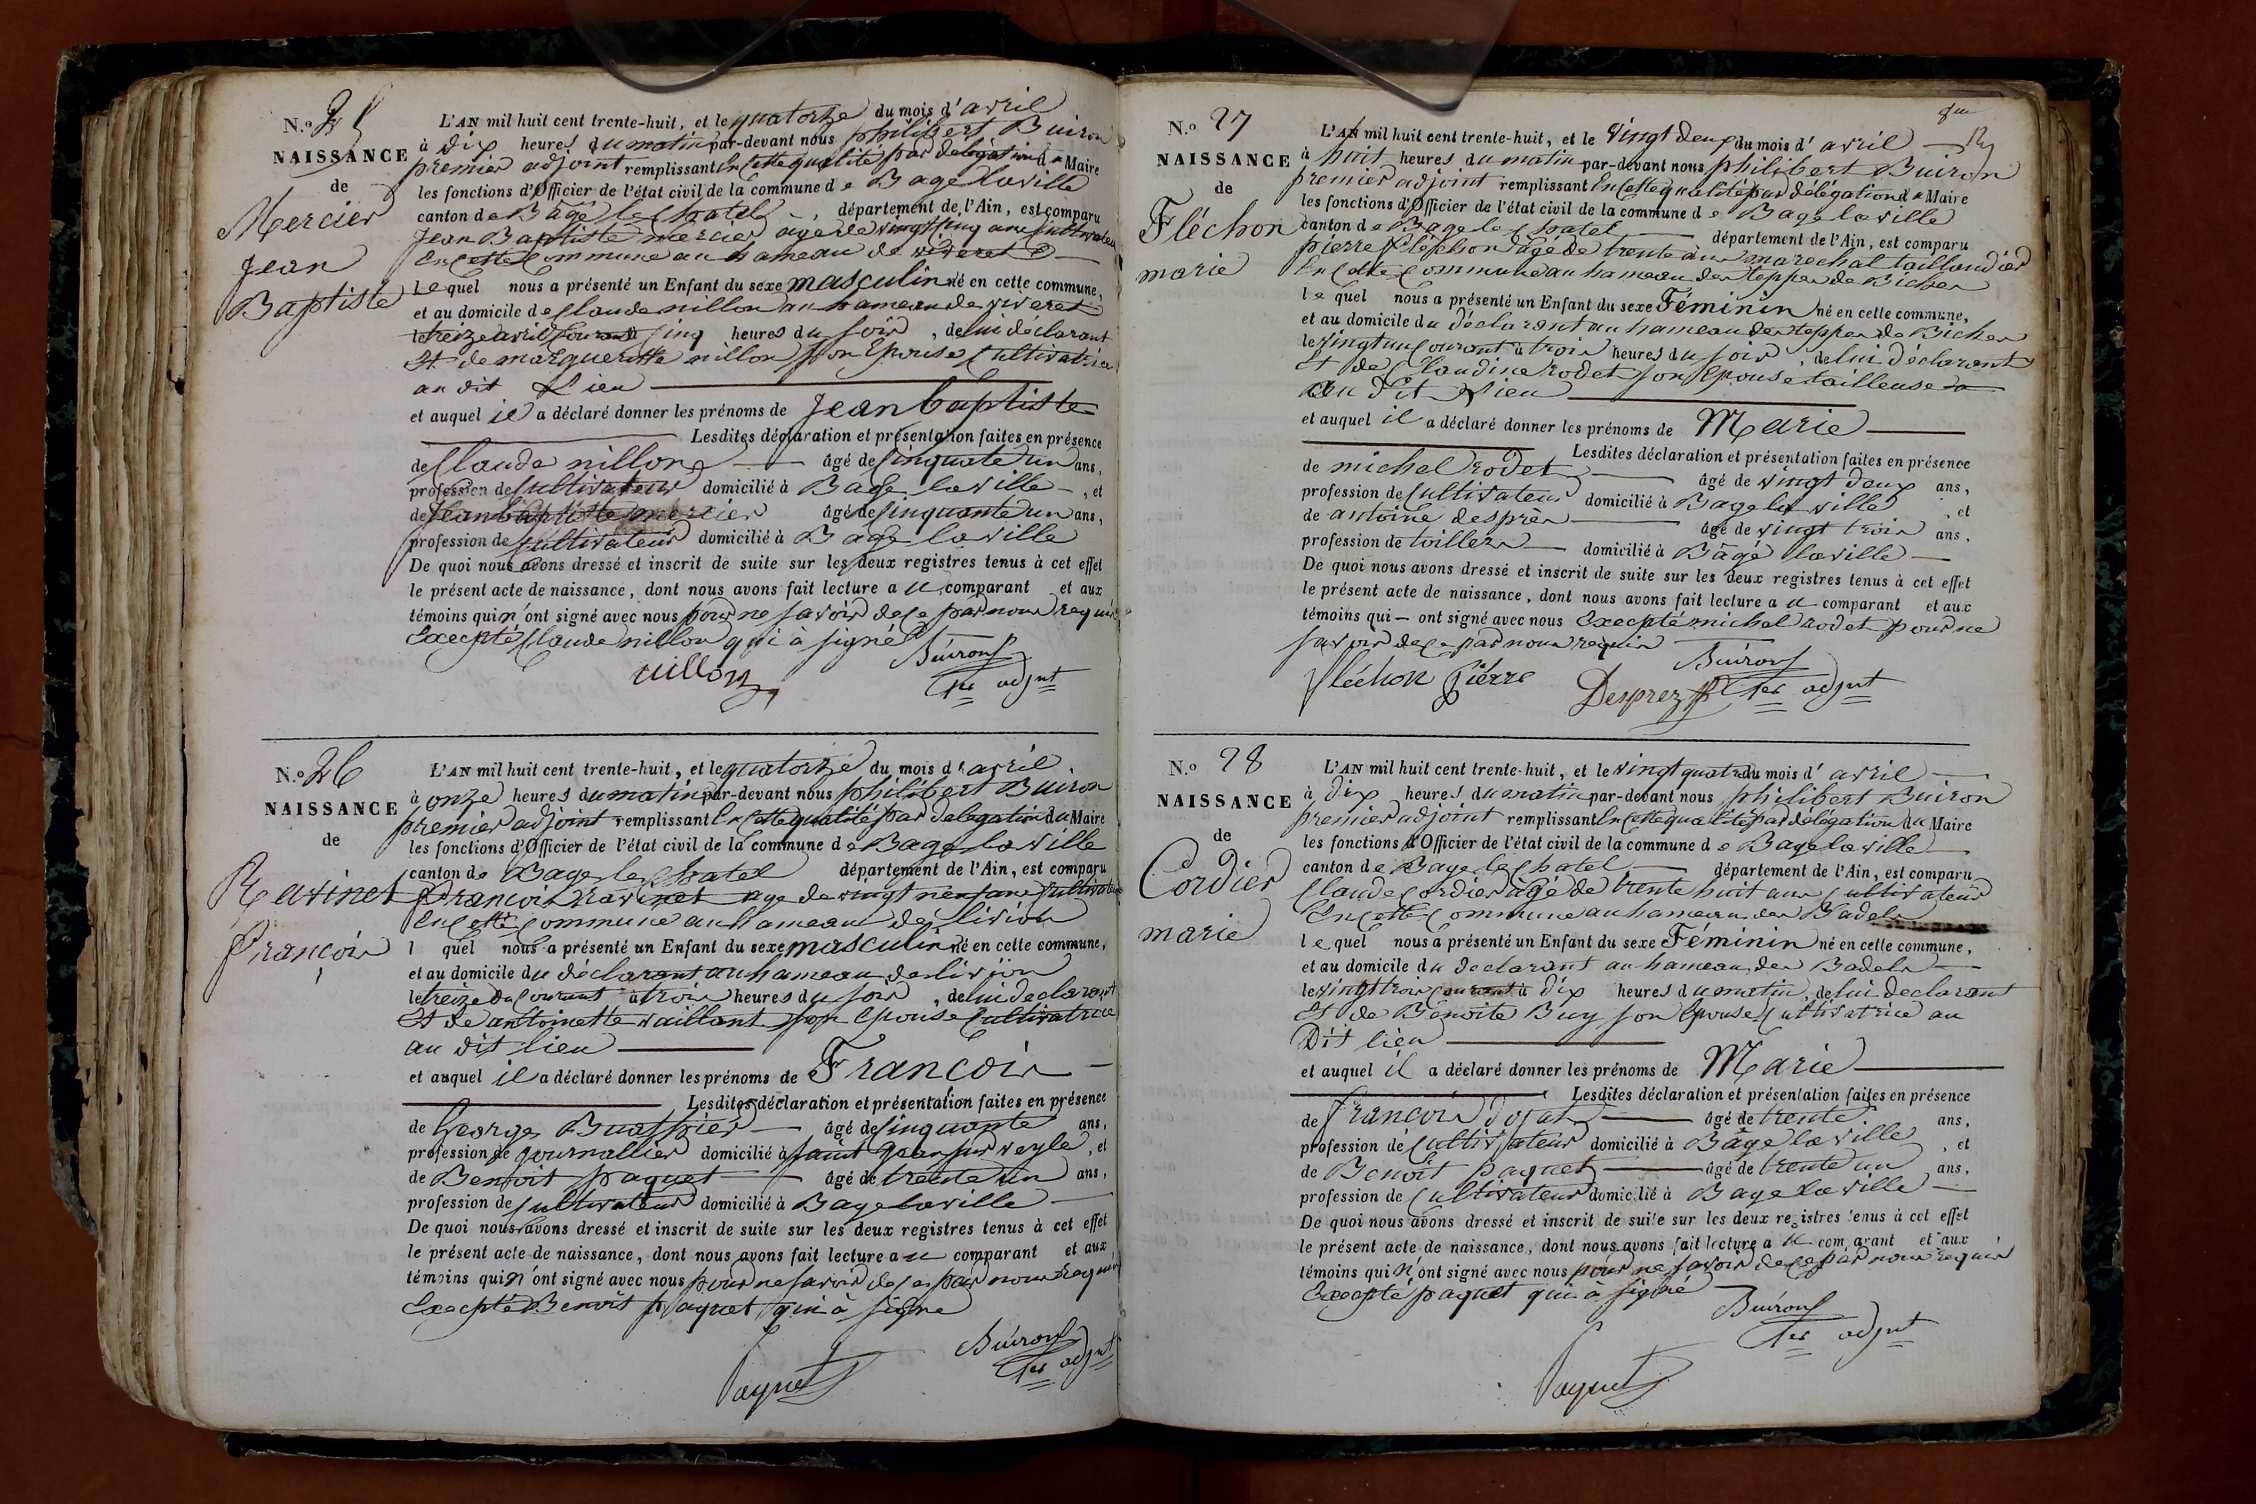 N.º 25
NAISSANCE
de
Mercier
Jean
Baptiste
L'AN mil huit cent trente-huit, et le quatorze du mois d'avril
à Dix heures du matin par-devant nous philibert Buiron
premier adjoint remplissant En cette qualité par délégation du Maire
les fonctions d'Officier de l'état civil de la commune de Bagé la ville
canton de Bâgé le Chatel, département de l'Ain, est comparu
Jean Baptiste Mercier agé de vingt cinq ans Cultivateur
En Cette Commune au hameau de viveret
Lequel nous a présenté un Enfant du sexe masculin né en cette commune,
et au domicile de Claude nillon au hameau de viveret
le treize avril Courant à Cinq heures du soir, de lui déclarant
Et de margueritte nillon son Epouse Cultivatrice
au dit Lieu
et auquel il a déclaré donner les prénoms de Jean baptiste
Lesdites déclaration et présentation faites en présence
de Claude nillon âgé de Cinquate un ans,
profession de Cultivateur domicilié à Bagé la ville, et
de Jean baptiste mercier âgé de Cinquante un ans,
profession de Cultivateur domicilié à Bâgé la ville
De quoi nous avons dressé et inscrit de suite sur les deux registres tenus à cet effet
le présent acte de naissance, dont nous avons fait lecture au comparant et aux
témoins qui n'ont signé avec nous pour ne savoir de ce par nous requis
Excepté Claude nillon qui à signé
nillon
Buiron
1er adjnt
N.º 26
NAISSANCE
de
Ravinet
François
L'AN mil huit cent trente-huit, et le quatorze du mois d'avril
à onze heures du matin par-devant nous philibert Buiron
premier adjoint remplissant En Cette qualité par delegation du Maire
les fonctions d'Officier de l'état civil de la commune de Bagé la ville
canton de Bagé le Chatel département de l'Ain, est comparu
François Ravinet age de vingt neuf ans Cultivateur
En Cette Commune au hameau de
l quel nous a présenté un Enfant du sexe masculin né en cette commune,
et au domicile du déclarant au hameau de
le treize du Courant à trois heures du soir, de lui declarant
Et de antoinette vaillant son Epouse Cultivatrice
au dit lieu
et auquel il a déclaré donner les prénoms de François
Lesdites déclaration et présentation faites en présence
de Georges Buathier âgé de Cinquante ans,
profession de journallier domicilié à saint jean sur veyle, et
de Benoit paquet âgé de trente un ans,
profession de Cultivateur domicilié à Bage la ville
De quoi nous avons dressé et inscrit de suite sur les deux registres tenus à cet effet
le présent acte de naissance, dont nous avons fait lecture au comparant et aux
témoins qui n'ont signé avec nous pour ne savoir de ce par nous requis
Excepté Benoit paquet qui à signé
Paquet
Buiron
1er adjnt
N.º 27
NAISSANCE
de
Fléchon
marie
L'AN mil huit cent trente-huit, et le vingt deux du mois d'avril
à huit heures du matin par-devant nous philibert Buiron
premier adjoint remplissant En cette qualité par délégation du Maire
les fonctions d'Officier de l'état civil de la commune de Bagé la ville
canton de Bage le Chatel département de l'Ain, est comparu
pierre Fléchon âgé de trente ans marechal taillandier
En Cette Commune au hameau des teppes de Biches
lequel nous a présenté un Enfant du sexe Féminin né en cette commune,
et au domicile du déclarant au hameau des teppes de Biches
le vingt un Courant à trois heures du soir, de lui déclarant
Et de Claudine rodet son Epouse tailleuse
au Dit Lieu
et auquel il a déclaré donner les prénoms de Marie
Lesdites déclaration et présentation faites en présence
de michel rodet âgé de vingt deux ans,
profession de Cultivateur domicilié à Bage la ville, et
de antoine desprès âgé de vingt trois ans,
profession de domicilié à Bâgé la ville
De quoi nous avons dressé et inscrit de suite sur les deux registres tenus à cet effet
le présent acte de naissance, dont nous avons fait lecture au comparant et aux
témoins qui ont signé avec nous Excepté michel rodet pour ne
savoir de ce par nous requis
fléchon Piérre
Desprez
Buiron
1er adjnt
N.º 28
NAISSANCE
de
Cordier
marie
L'AN mil huit cent trente-huit, et le vingt quatre du mois d'avril
à Dix heures du matin par-devant nous philibert Buiron
premier adjoint remplissant En cette qualité par délégation du Maire
les fonctions d'Officier de l'état civil de la commune de Bagé la ville
canton de Bage le Chatel département de l'Ain, est comparu
Claude Cordier âgé de trente huit ans Cultivateur
En Cette Commune au hameau des Badets
lequel nous a présenté un Enfant du sexe Féminin né en cette commune,
et au domicile du declarant au hameau des Badets
le vingt trois Courant à dix heures du matin, de lui declarant
Et de Benoite Buy son Epouse Cultivatrice au
Dit lieu
et auquel il a déclaré donner les prénoms de Marie
Lesdites déclaration et présentation faites en présence
de François âgé de trente ans,
profession de Cultivateur domicilié à Bâgé la ville, et
de Benoit paquet âgé de trente un ans,
profession de Cultivateur domicilié à Bage la ville
De quoi nous avons dressé et inscrit de suite sur les deux registres tenus à cet effet
le présent acte de naissance, dont nous avons fait lecture au comparant et aux
témoins qui n'ont signé avec nous pour ne savoir de ce par nous requis
Excepté paquet qui à signé
Paquet
Buiron
1er adjnt